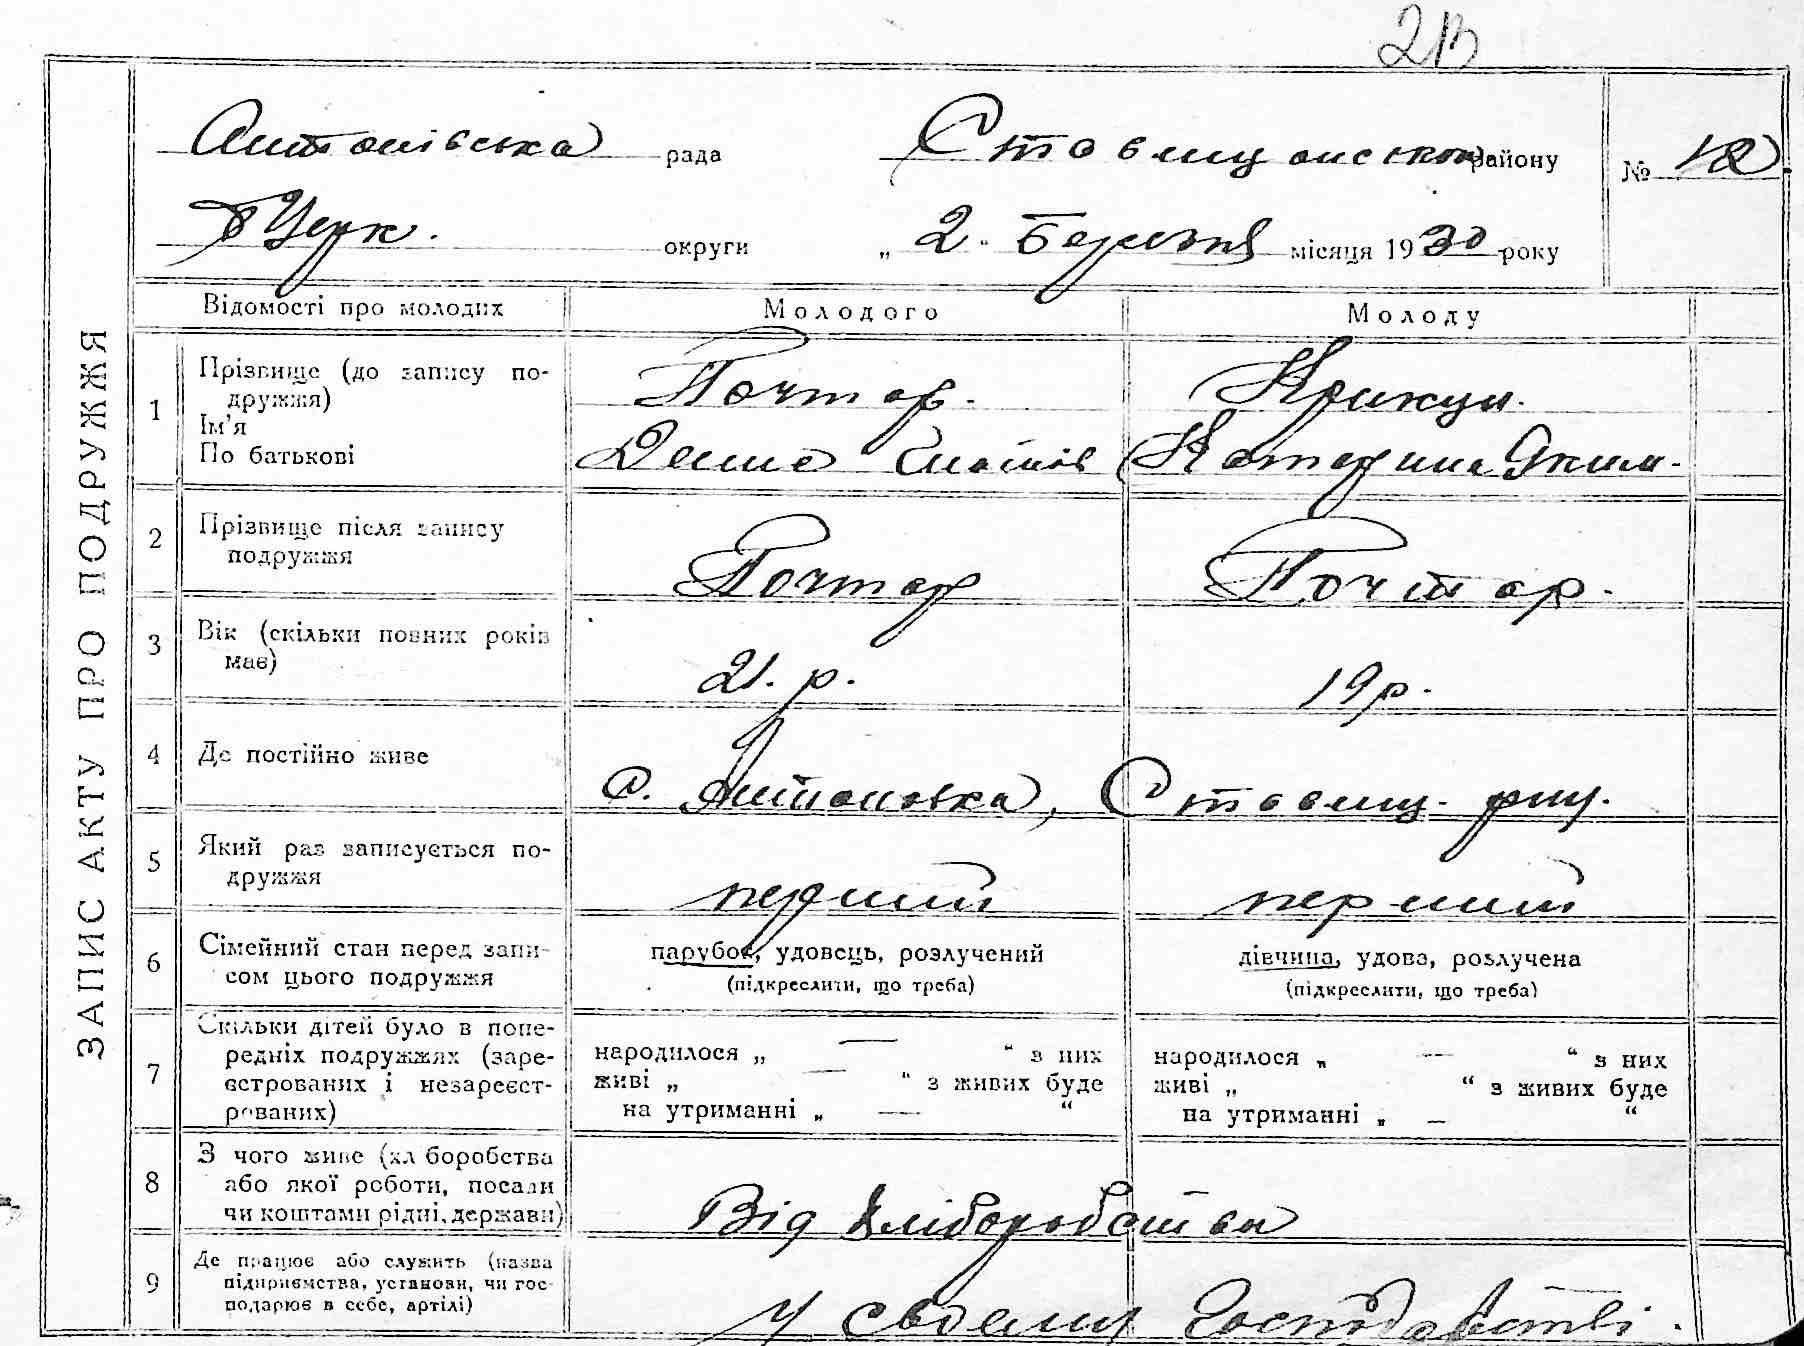 Антонівська рада Ставищанського району № 12
БЦерк. округи „ 2 " Березня місяця 1930 року
ЗАПИС АКТУ ПРО ПОДРУЖЖЯ
Відомості про молодих Молодого Молоду
1 Прізвище (до запису по-
дружжя) Почтар. Крикун.
Ім'я
По батькові Катерина Яким.
2 Прізвище після запису
подружжя Почтар Почтар.
3 Вік (скільки повних років
має) 21. р. 19 р.
4 Де постійно живе с. Антоновка, Ставищ. рну.
5 Який раз записується по-
дружжя перший перший
6 Сімейний стан перед запи-
сом цього подружжя
парубок, удовець, розлучений дівчина, удова, розлучена
(підкреслити, що треба) (підкреслити, що треба)
7 Скільки дітей було в попе-
редніх подружжях (заре-
єстрованих і незареєст-
рованих)
народилося „ — “ з них народилося „ — “ з них
живі „ — “ з живих буде живі „ “ з живих буде
на утриманні „ — “ на утриманні „ — “
8 З чого живе (хл боробства
або якої роботи, посади
чи коштами рідні, держави) Від хліборобства
9 Де працює або служить (назва
підприємства, установи, чи гос-
подарює в себе, артілі) У своему господарстві.